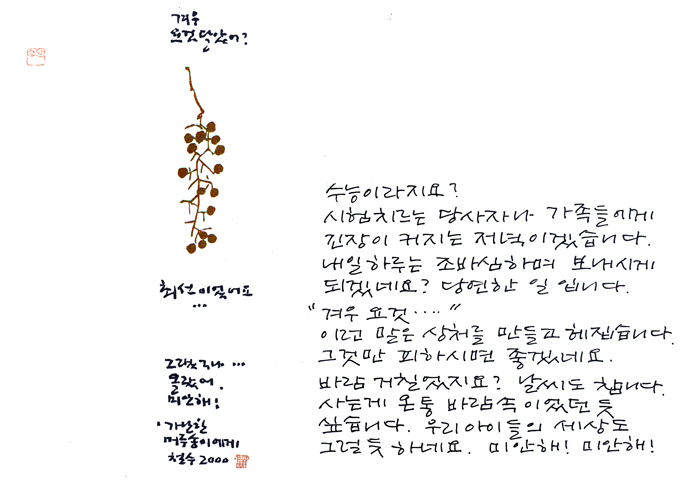 겨우
요것 달았어?
최선이었어요
...
그랬구나...
몰랐어.
미안해!
'가난한
머루송이에게
철수 2000
수능이라지요?
시험치르는 당사자나 가족들에게
긴장이 커지는 저녁이겠습니다.
내일하루는 조바심하며 보내시게
되겠네요? 당연한 일 입니다.
"겨우 요것...."
이런 말은 상처를 만들고 헤집습니다.
그것만 피하시면 좋겠네요.
바람 거칠었지요? 날씨도 찹니다.
사는게 온통 바람속이었던 듯
싶습니다. 우리아이들의 세상도
그럴 듯 하네요. 미안해! 미안해!